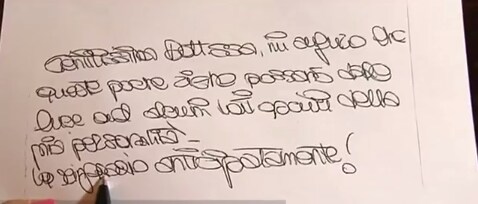 Gentilissima Dottssa, mi auguro che
queste poche righe possano dare
luce ad alcuni lati oscuri della
mia personalità -
La ringrazio anticipatamente!